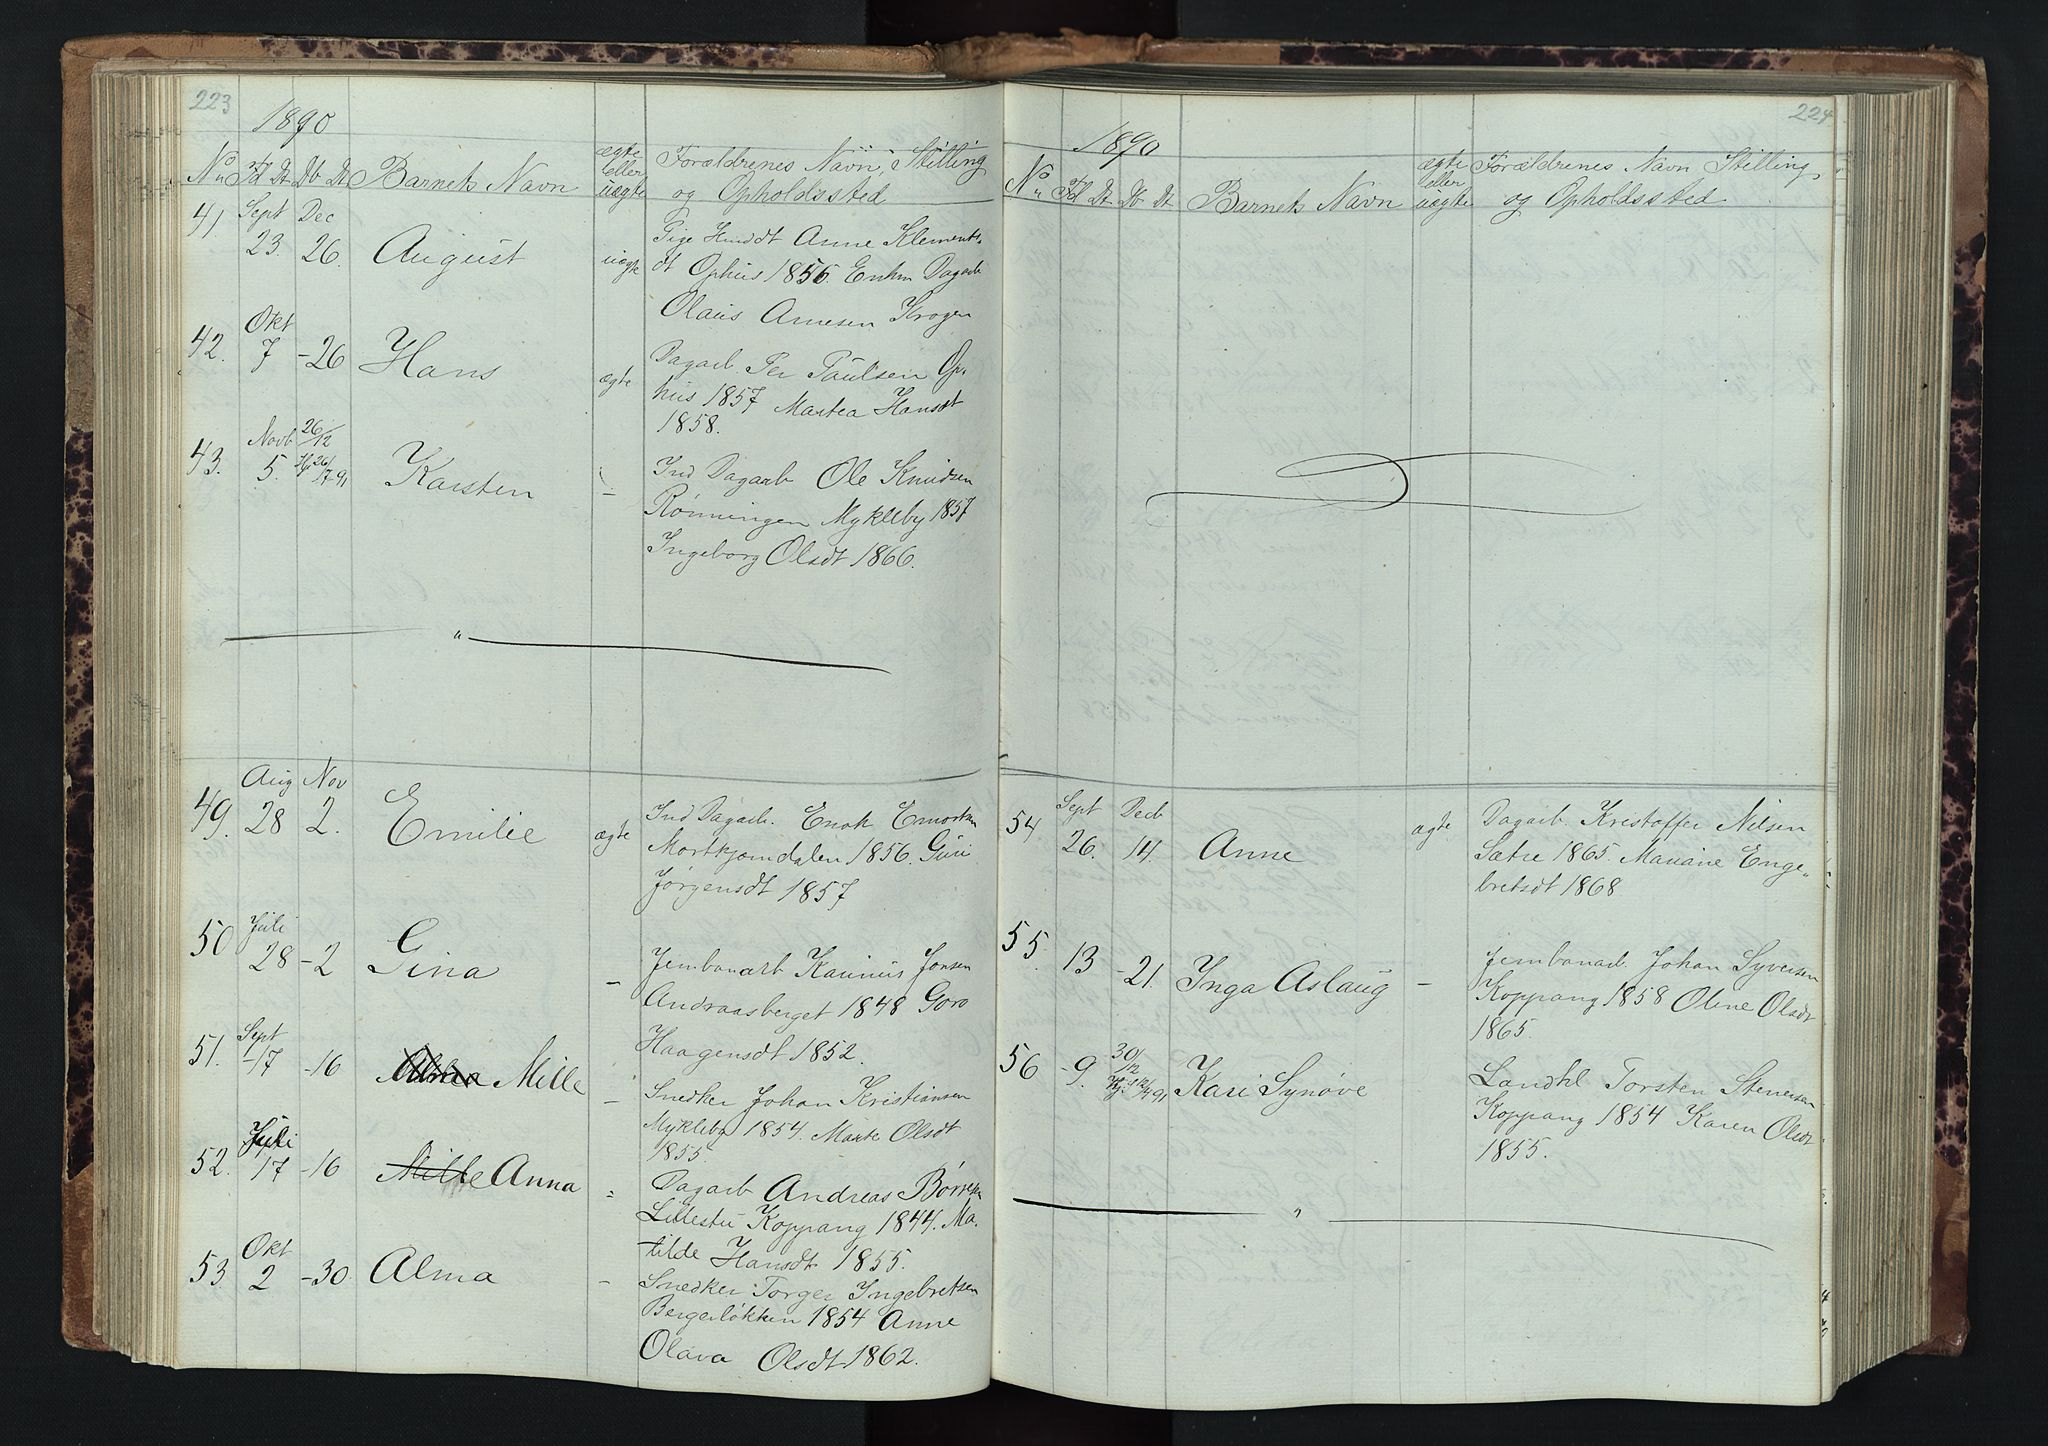 223
1890
No Fd Dt Db Dt Barnets Navn ægte eller uægte Forældrenes Navn, Stilling og Opholdssted
41 Sept 23. Dec 26. August uægte Pige Husdt Anne Klements-
dt Ophus 1856. Enkm Dagarb
Olaus Arnesen Krogen
42. Okt 7 -26 Hans ægte Dagarb. Per Paulsen Op-
hus 1857 Martea Hansdt
1858.
43. Novb 5. 26/12 Hj. 26/7-91 Karsten - Ind Dagarb Ole Knudsen
Rønningen Mykleby 1857
Ingeborg Olsdt 1866.
49. Aug 28 Nov 2. Emilie ægte Ind Dagarb. Enok Emortsen
Mortkjærndalen 1856. Guri
Jørgensdt 1857
50 Juli 28 -2 Gina - Jernbanearb Karinus Jonsen
Andraasberget 1848 Goro
Haagensdt 1852.
51. Sept 17 -16 Alma Mille - Snedker Johan Kristiansen
Mykleby 1854. Marte Olsdt
1855
52. Juli 17 -16 Mille Anna - Dagarb Andreas Børresen
Lillestu Koppang 1844. Ma-
tilde Hansdt 1855.
53 Okt 2 -30 Alma - Snedker Torger Ingebretsen
Bergerløkken 1854 Anne
Olava Olsdt 1862.
224
1890
No Fd Dt Db Dt Barnets Navn ægte eller uægte Forældrenes Navn Stilling,
og Opholdssted
54 Sept 26. Decb 14. Anne ægte Dagarb. Kristoffer Nilsen
Sætre 1865. Mariane Enge-
bretsdt 1868
55. 13 -21. Inga Aslaug - Jernbanarb. Johan Syversen
Koppang 1858 Oline Olsdt
1865.
56 -9. 30/12 Hj. 12/4 91 Kari Synøve Landhl Torsten Stenersen
Koppang 1854 Karen Olsdt
1855.